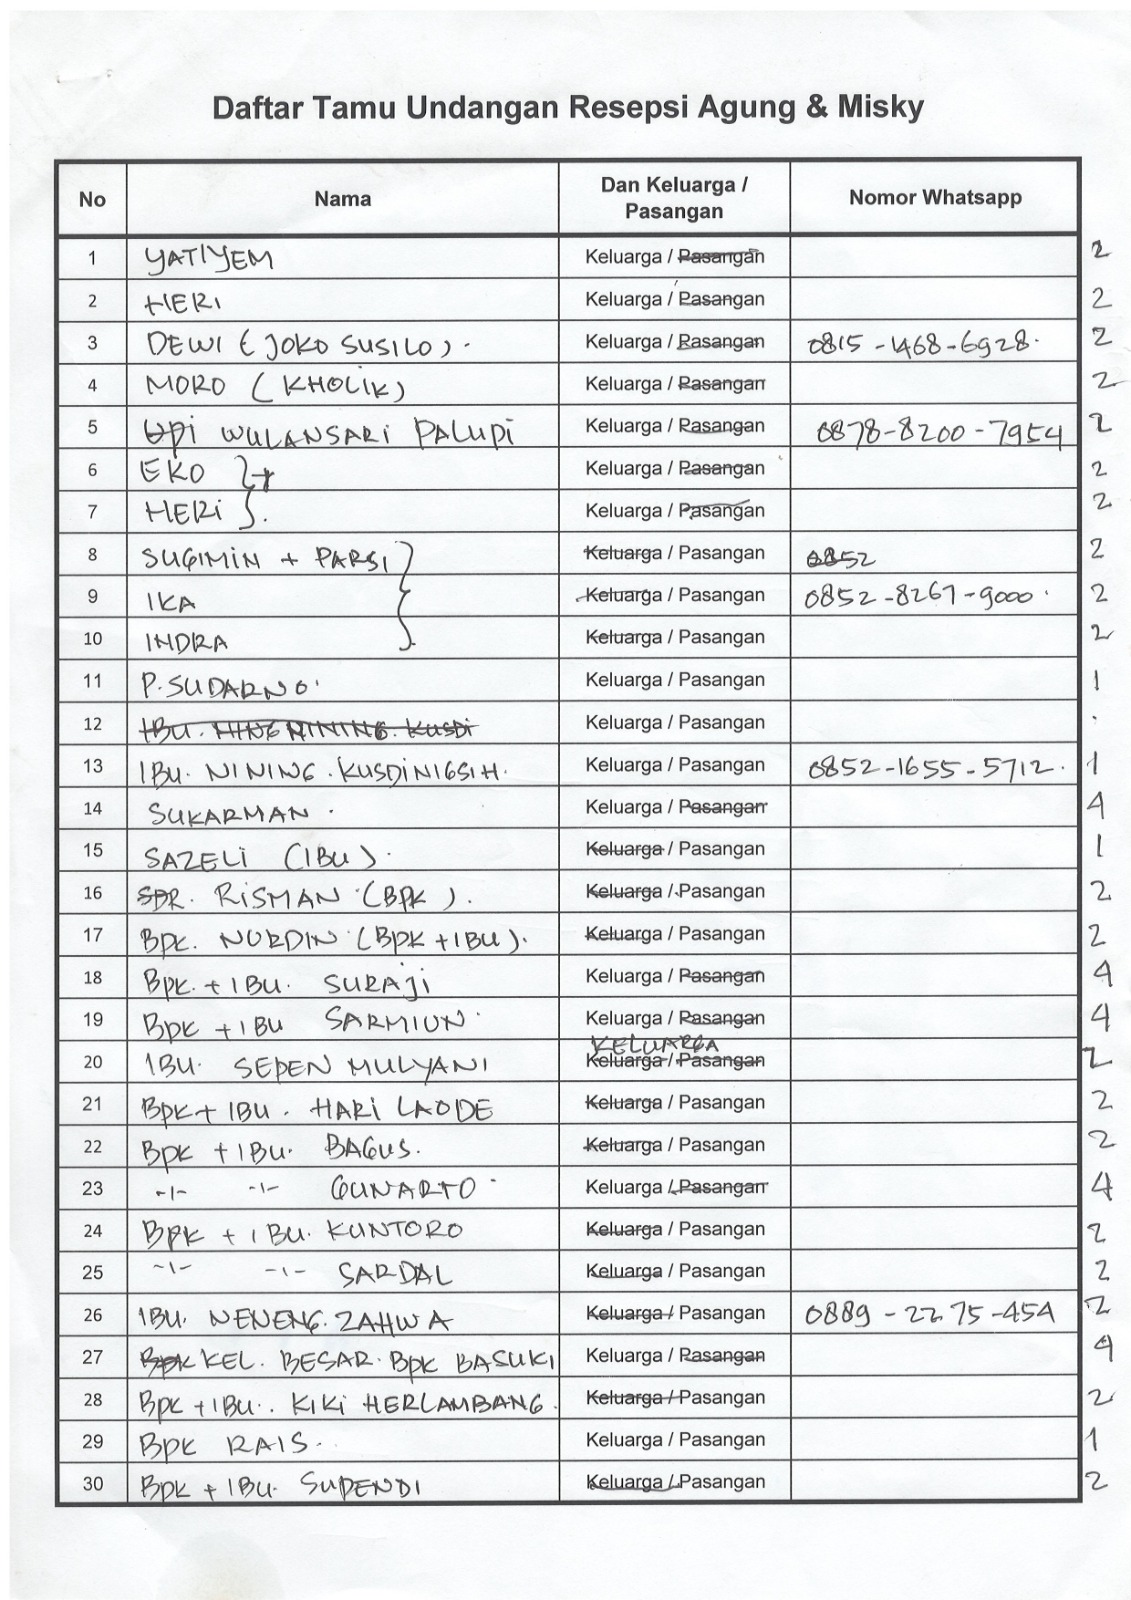 Daftar Tamu Undangan Resepsi Agung & Misky
No Nama Dan Keluarga / Pasangan Nomor Whatsapp
1 YATIYEM Keluarga / Pasangan 2
2 HERI Keluarga / Pasangan 2
3 DEWI (JOKO SUSILO). Keluarga / Pasangan 0815-1468-6928. 2
4 MORO (KHOLIK) Keluarga / Pasangan 2
5 Upi WULANSARI PALUPI Keluarga / Pasangan 0878-8200-7954 2
6 EKO Keluarga / Pasangan 2
7 HERI Keluarga / Pasangan 2
8 SUGIMIN + PARSI Keluarga / Pasangan 0852 2
9 IKA Keluarga / Pasangan 0852-8267-9000. 2
10 INDRA Keluarga / Pasangan 2
11 P. SUDARNO. Keluarga / Pasangan 1
12 IBU. NINING. KUSDI Keluarga / Pasangan
13 IBU. NINING. KUSDINIGSIH. Keluarga / Pasangan 0852-1655-5712. 1
14 SUKARMAN. Keluarga / Pasangan 4
15 SAZELI (IBU). Keluarga / Pasangan 1
16 SDR. RISMAN (BPK). Keluarga / Pasangan 2
17 BPK. NURDIN (BPK + IBU). Keluarga / Pasangan 2
18 BPK. + IBU. SURAJI Keluarga / Pasangan 4
19 BPK + IBU SARMIUN. Keluarga / Pasangan 4
20 IBU. SEPEN MULYANI KELUARGA Keluarga / Pasangan 2
21 BPK + IBU. HARI LAODE Keluarga / Pasangan 2
22 BPK + IBU. BAGUS. Keluarga / Pasangan 2
23 -1- -1- GUNARTO Keluarga / Pasangan 4
24 BPK + IBU. KUNTORO Keluarga / Pasangan 2
25 -1- -1- SARDAL Keluarga / Pasangan 2
26 IBU. NENENG. ZAHWA Keluarga / Pasangan 0889-2275-454 2
27 BPK KEL. BESAR. BPK BASUKI Keluarga / Pasangan 4
28 BPK + IBU. KIKI HERLAMBANG. Keluarga / Pasangan 2
29 BPK RAIS. Keluarga / Pasangan 1
30 BPK + IBU. SUPENDI Keluarga / Pasangan 2